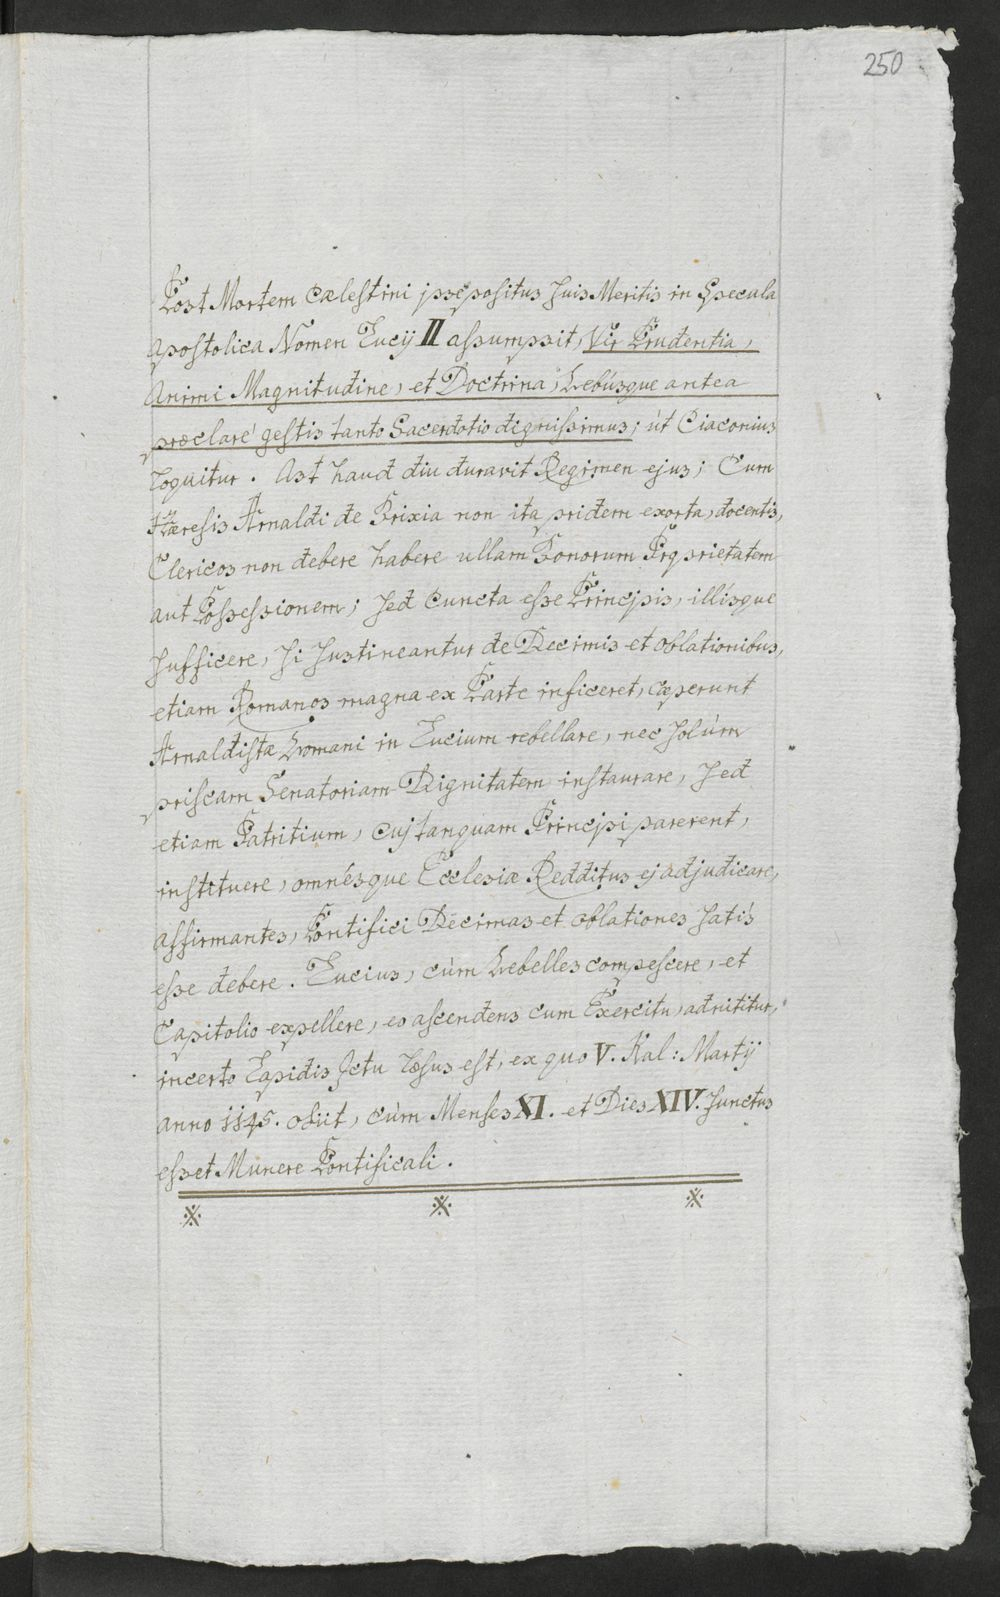 250
Post Mortem Cælestini præpositus suis Meritis in Specula
Apostolica Nomen Lucij II assumpsit, Vir Prudentia,
Animi Magnitudine, et Doctrina, Rebúsque antea
præclaré gestis tanto Sacerdotio dignissimus; út Ciaconius
loquitur. Ast haud diu duravit Regimen ejus; Cum
Hæresis Arnaldi de Brixia non ita pridem exorta, docentis,
Clericos non debere habere ullam Bonorum Proprietatem
aut Possessionem; sed cuncta esse Principis, illísque
sufficere, si sustineantur de Decimis et oblationibus,
etiam Romanos magna ex Parte inficeret, cœperunt
Arnaldistæ Romani in Lucium rebellare, nec solúm
priscam Senatoriam Dignitatem instaurare, sed
etiam Patritium, cuj tanquam Principi parerent,
instituere, omnésque Ecclesiæ Redditus ej adjudicare,
affirmantes, Pontifici Decimas et oblationes satis
esse debere. Lucius, cùm Rebelles compescere, et
Capitolio expellere, eo ascendens cum Exercitu, adnititur,
incerto Lapidis Ictu læsus est, ex quo V. Kal: Martij
anno 1145. obiit, cùm Menses XI. et Dies XIV. functus
esset Munere Pontificali.